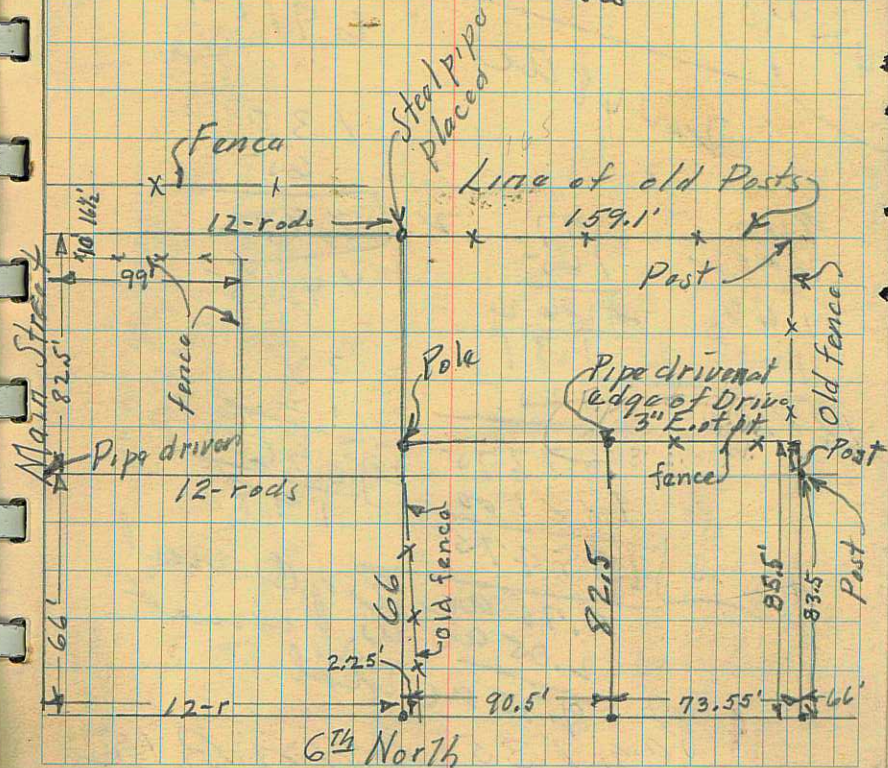 Steel pipe
placed
Fence
Line of old Posts
16½'
10'
12-rods
159.1'
99'
Post
Main Street
82.5'
fence
Old fence
Pole
Pipe driven at
edge of Drive
3" E. of pt
Pipe driven
fence
Post
12-rods
Post
66'
66
old fence
82.5
85.5'
83.5
2.25'
12-r
90.5'
73.55'
66'
6TH North